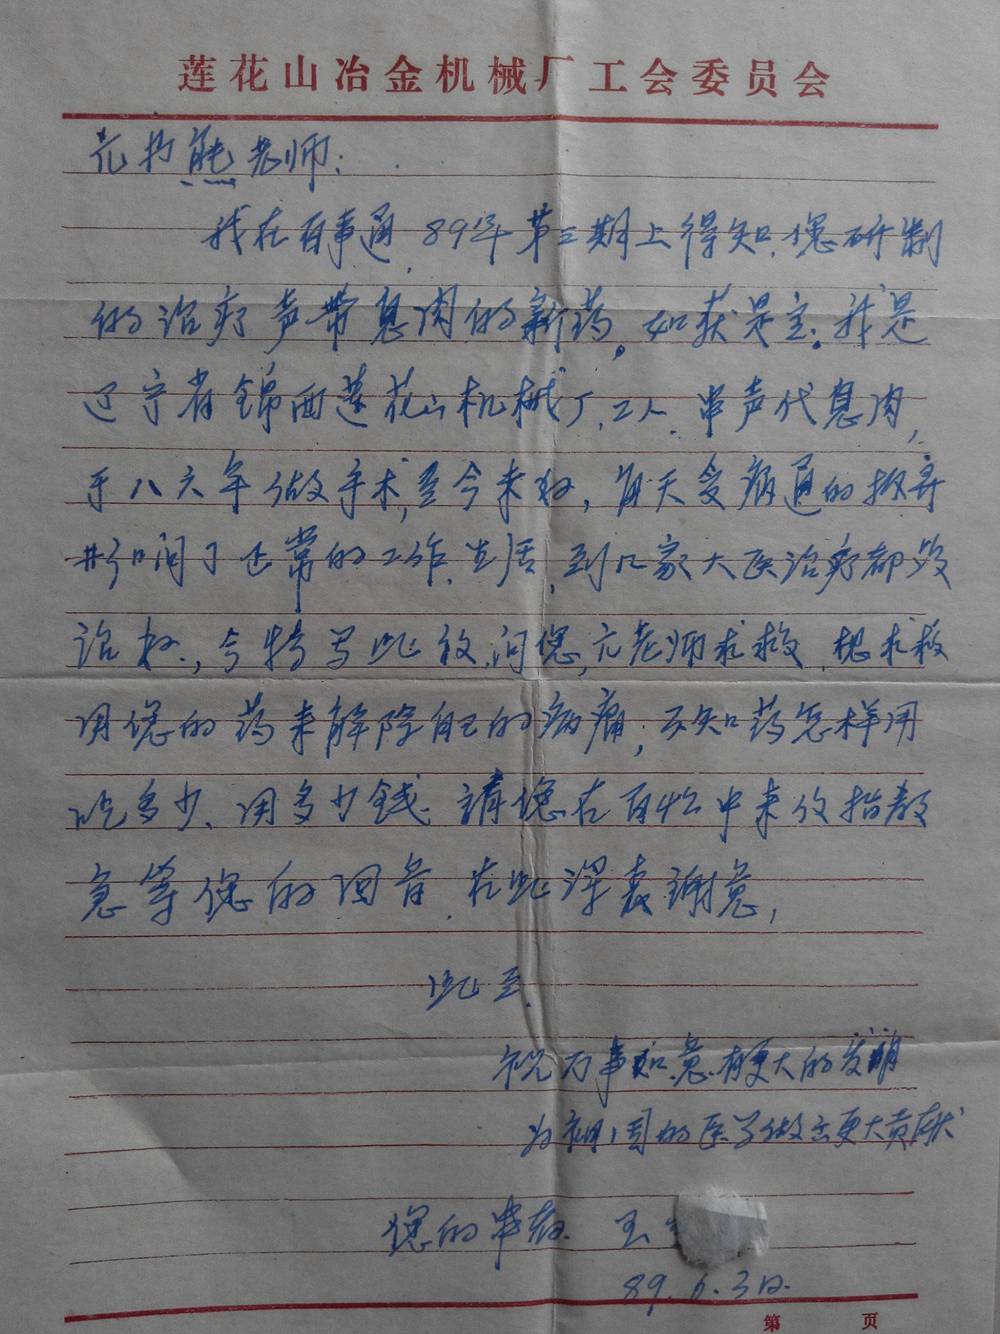 莲花山冶金机械厂工会委员会
老师:
我在百事通,89年第三期上得知,您研制
的治疗声带息肉的新药。如获是宝。我是
辽宁省锦西莲花山机械厂,工人.患声代息肉,
于八六年做手术,至今未好,每天受病
影响了正常的工作.生活,到几家大医治疗都没
治好.,今特写此 问您,元老师求救,想求救
用您的药来解除自己的病痛,不知药怎样用
吃多少、用多少钱.请您在百忙中来 指教
急等您的回音.在此深表谢意,
此至.
祝万事如意.有更大的发明
为祖国的医学做出更大贡献
您的患者.王
89.6.3日.
第 页